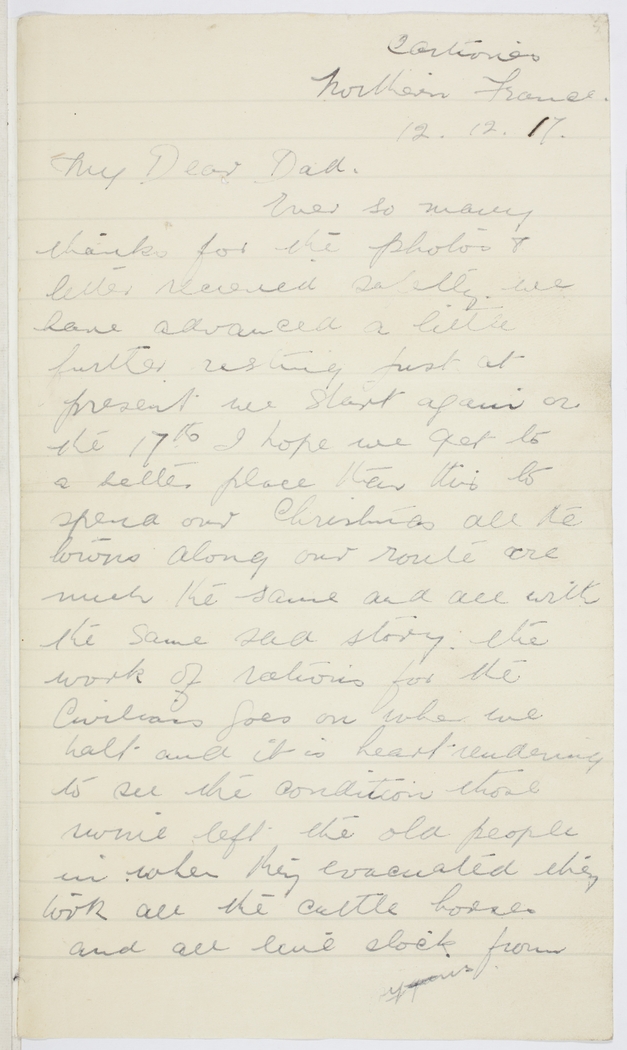 Cartignies
Northern France.
12. 12. 17.
My Dear Dad.
Ever so many
thanks for the photos &
letter recieved safely. we
have advanced a little
further resting just at
present we start again on
the 17th I hope we get to
a better place than this to
spend our Christmas all the
towns along our route are
much the same and all with
the same sad story. the
work of rations for the
Civilians goes on when we
halt and it is heart rendering
to see the condition those
left the old people
in when they evacuated they
took all the cattle horses
and all live stock from